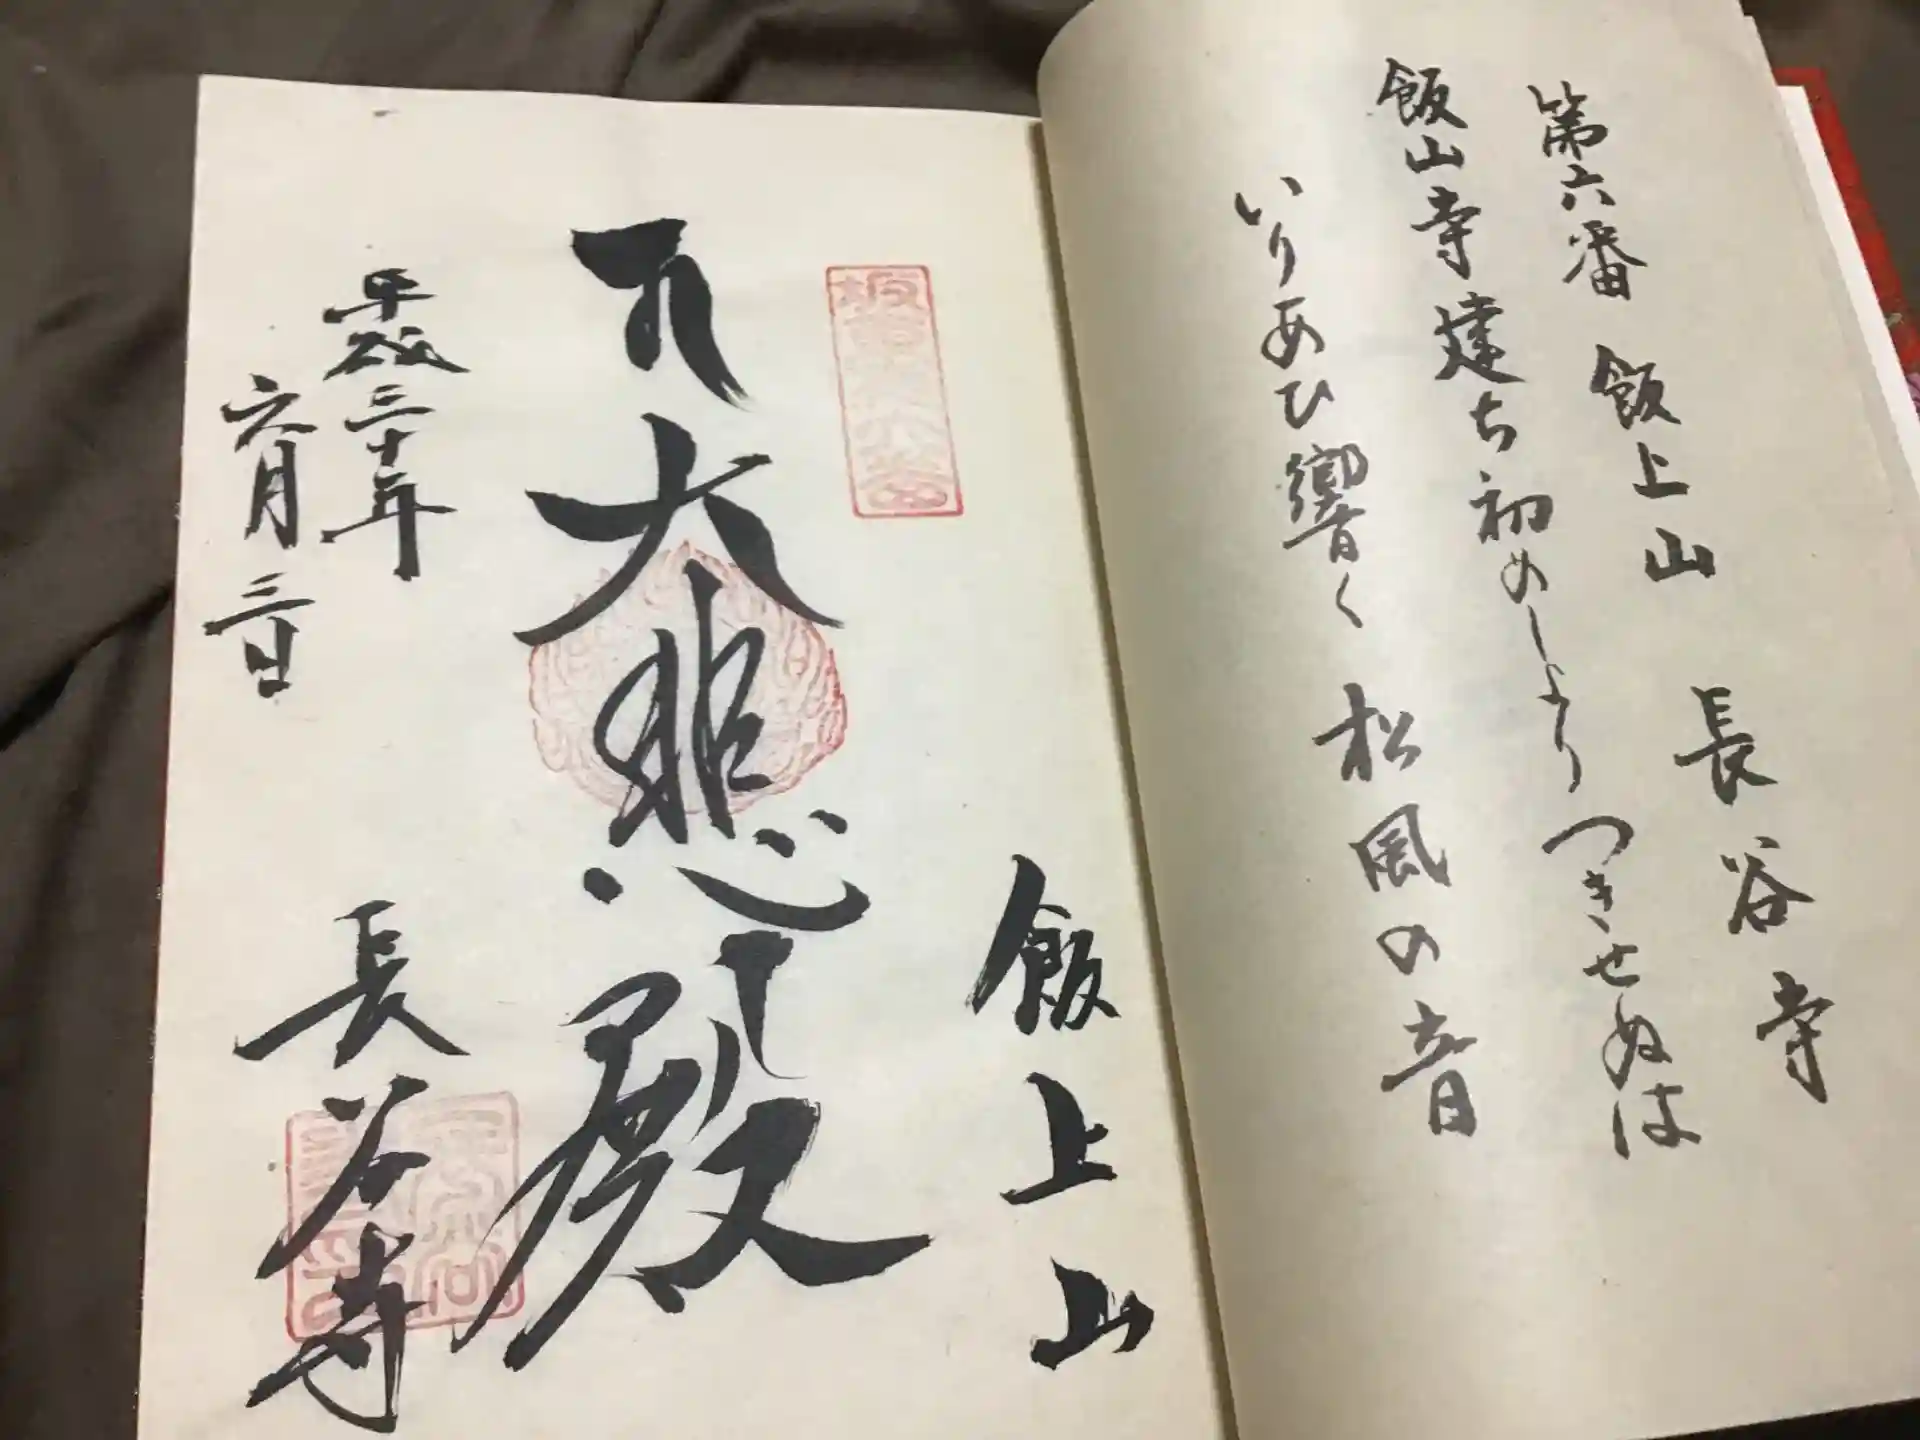 第六番 飯上山 長谷寺
飯山寺建ち初めしよりつきせぬは
いりあひ響く松風の音
飯上山
坂東第六番
大悲殿
平成三十年
六月三日
長谷寺